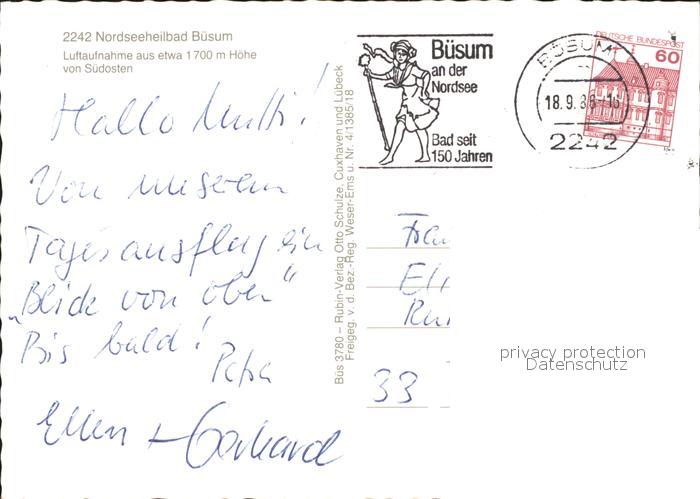 2242 Nordseeheilbad Büsum
Luftaufnahme aus etwa 1700 m Höhe
von Südosten
Hallo Mutti!
Von unserem
Tagesausflug ein
„Blick von oben"
Bis bald!
Petra
Ellen + Gerhard
Büs 3780 – Rubin-Verlag Otto Schulze, Cuxhaven und Lübeck
Freigeg. v. d. Bez.-Reg. Weser-Ems u. Nr. 4/1385/18
Büsum
an der
Nordsee
Bad seit
150 Jahren
BÜSUM
18.9.86-16
2242
DEUTSCHE BUNDESPOST
60
Frau
33
privacy protection
Datenschutz